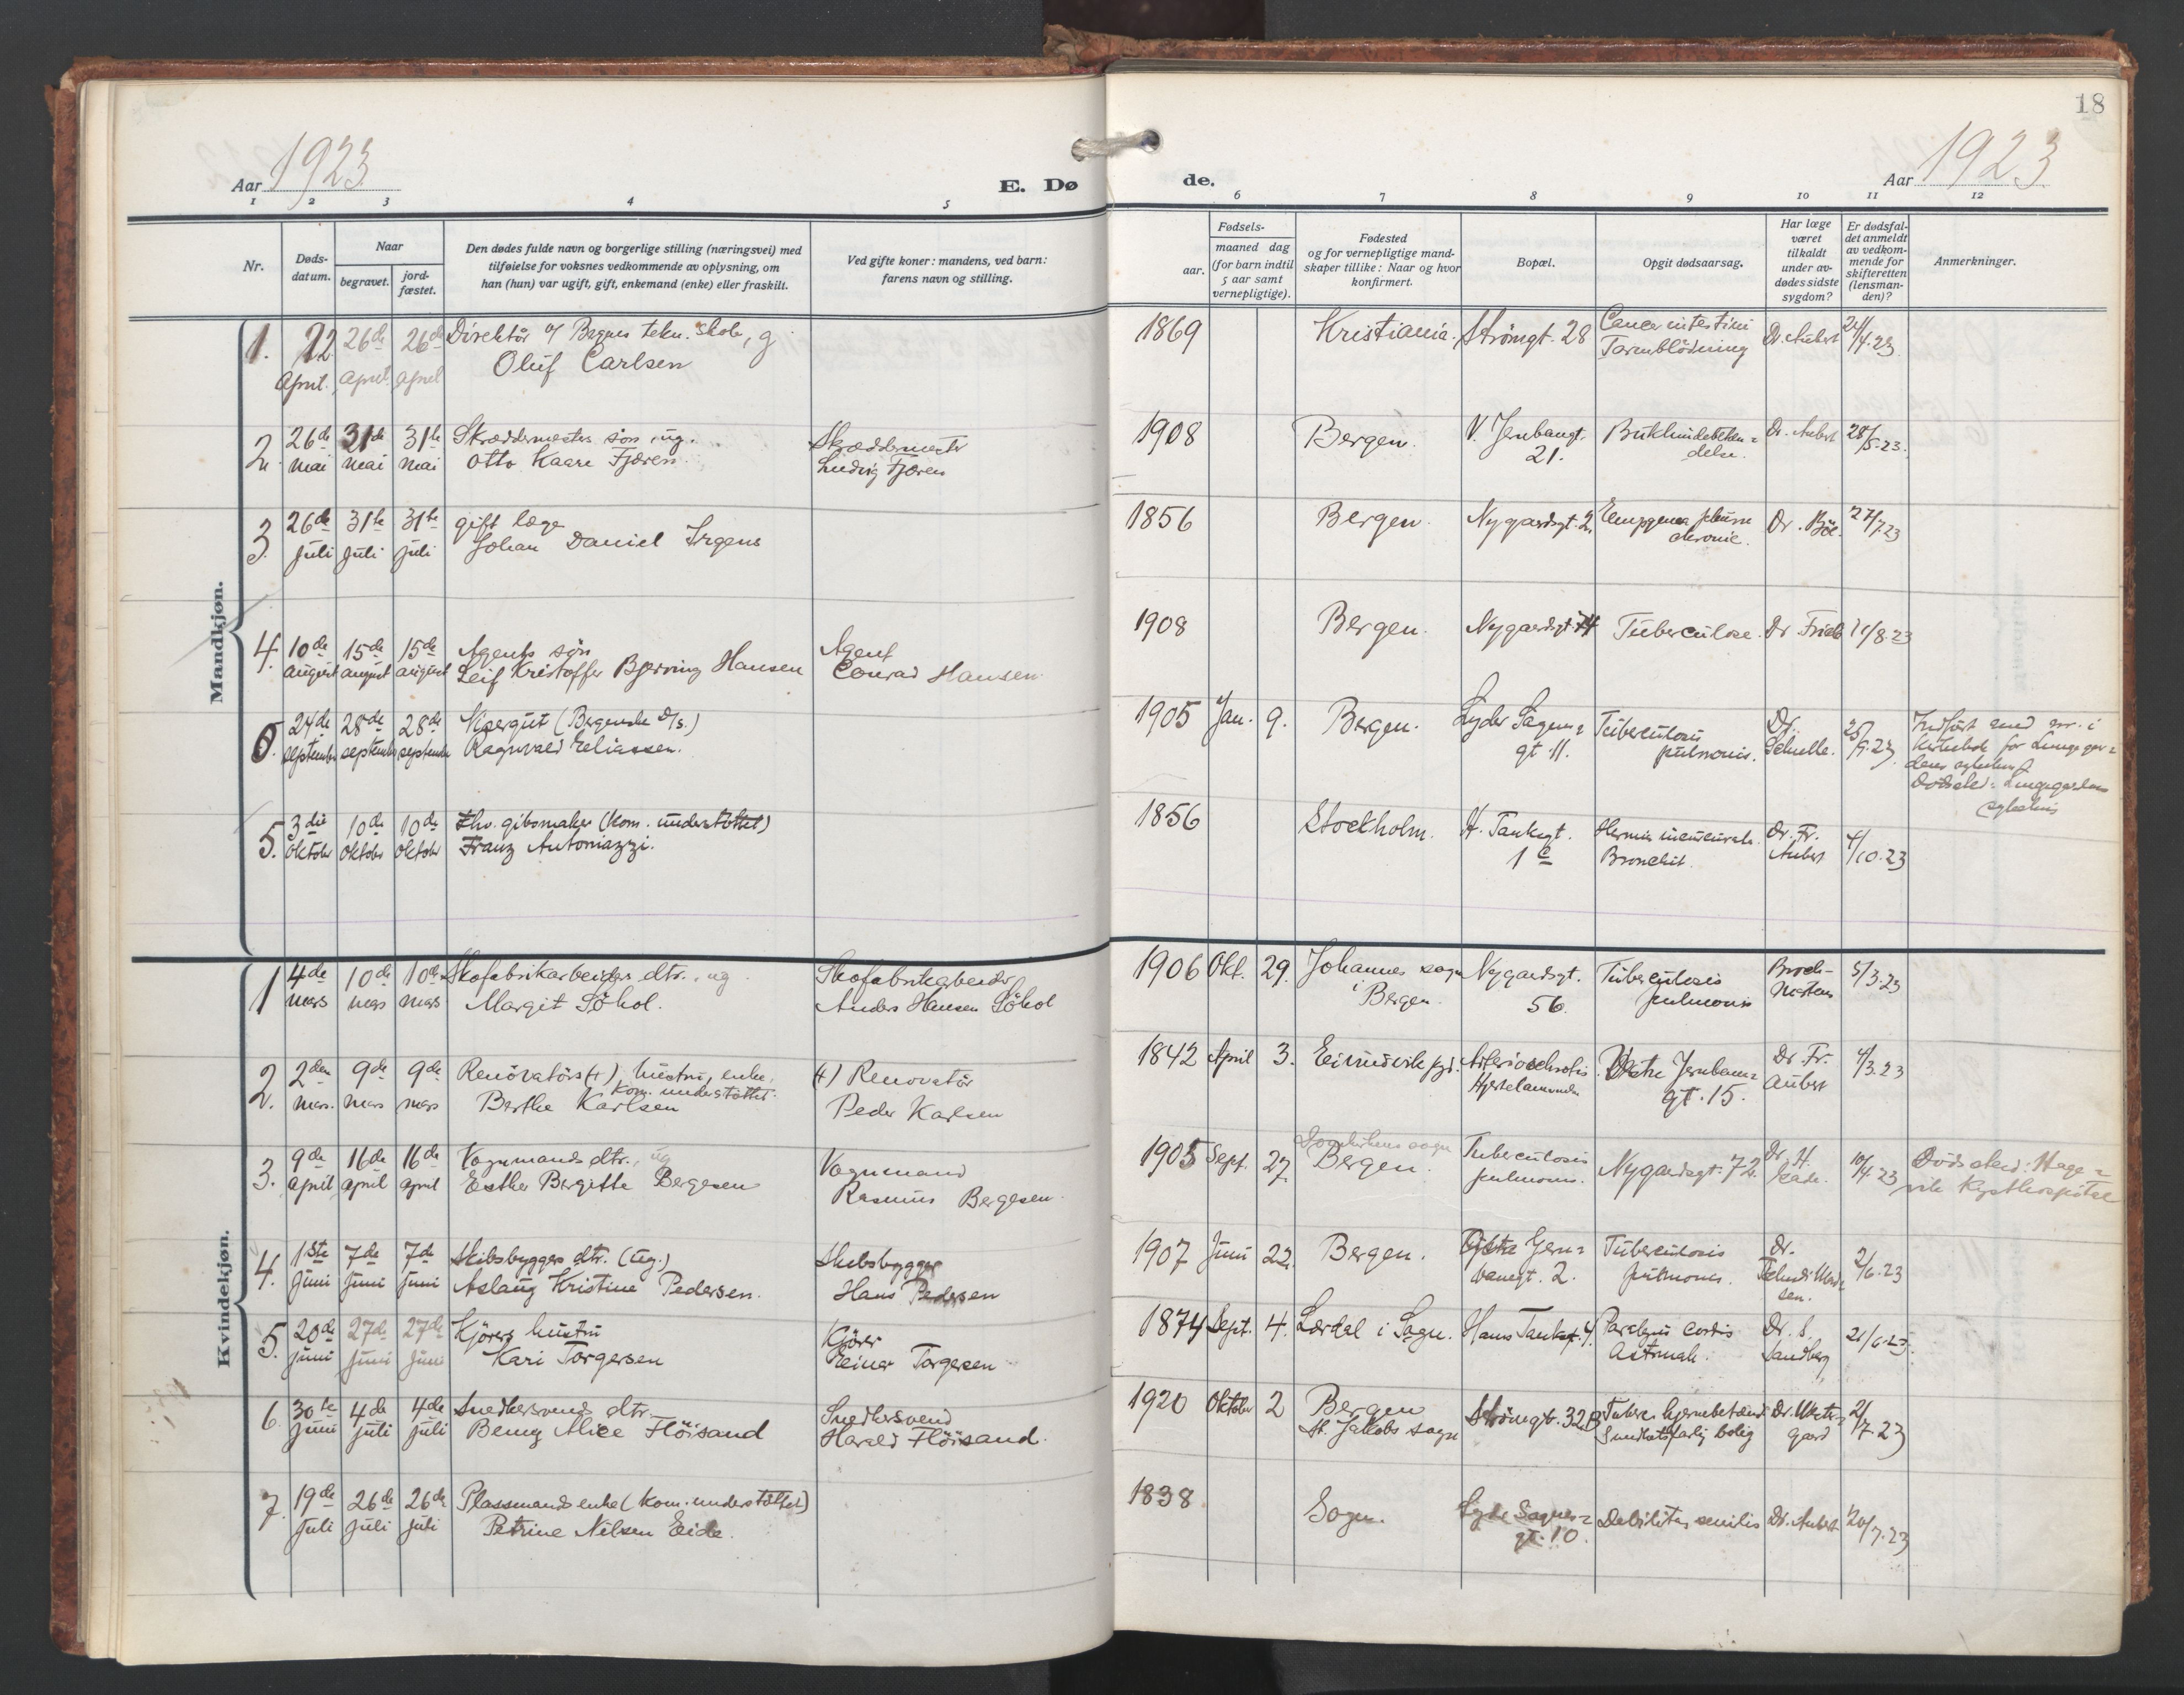 18
Aar 1923
E. Dø
de.
Aar 1923
1 2 3 4 5 6 7 8 9 10 11 12
Nr.
Døds-
datum.
Naar
begravet.
jord-
fæstet.
Den dødes fulde navn og borgerlige stilling (næringsvei) med
tilføielse for voksnes vedkommende av oplysning, om
han (hun) var ugift, gift, enkemand (enke) eller fraskilt.
Ved gifte koner: mandens, ved barn:
farens navn og stilling.
Fødsels-
aar.
maaned dag
(for barn indtil
5 aar samt
vernepligtige).
Fødested
og for vernepligtige mand-
skaper tillike: Naar og hvor
konfirmert.
Bopæl.
Opgit dødsaarsag.
Har læge
været
tilkaldt
under av-
dødes sidste
sygdom?
Er dødsfal-
det anmeldt
av vedkom-
mende for
skifteretten
(lensman-
den)?
Anmerkninger.
Mandkjøn.
1. 22 26de 26de Direktör v/ Bergens tekn. skole, g
april. april april Oluf Carlsen
1869 Kristiania. Strömgt. 28 Cancer intestini Dr. Aubert 24/4.23
Tarmblödning
2. 26de 31te 31te Skræddermesters sön, ug. Skræddermester
mai mai mai Otto Kaare Fjæren Ludvig Fjæren
1908 Bergen. V. Jernbanegt. 21. Bukhindebeten=
delse. Dr. Aubert 28/5.23.
3. 26de 31te 31te gift læge
juli juli juli Johan Daniel Irgens
1856 Bergen. Nygaardsgt. 2. Empyema pleurae
chronic. Dr. Böe. 27/7.23
4. 10de 15de 15de Agents sön Agent
august august august Leif Kristoffer Bjerving Hansen Conrad Hansen
1908 Bergen. Nygaardsgt. Tuberculose. Dr 11/8.23
0. 24de 28de 28de Visergut (Bergenske D/s.)
september september september Ragnvald Eliassen.
1905 Jan. 9. Bergen. Lyder Sagens=
gt 11. Tuberculosis
pulmonis. Dr.
25/9.23
Indfört med nr. i
kirkebok for Lungegaar=
dens sykehus
Dödssted: Lungegaardens
sykehus
5. 3die 10de 10de Fhv. gibsmaker (kom. understöttet)
oktober oktober oktober Franz Antoniazzi.
1856 Stockholm. H. Tanksgt.
1 c Hernia incarcerata.
Bronchit. Dr. Fr.
Aubert 4/10.23
Kvindekjøn.
1 4de 10de 10de Skofabrikarbeiders dtr., ug. Skofabrikarbeider
mars mars mars Margit Söhol. Anders Hansen Söhol
1906 Okt. 29. Johannes sogn
i Bergen. Nygaardsgt.
56. Tuberculosis
pulmonis 5/3.23
2. 2den 9de 9de Renovatörs (+) hustru, enke, (+) Renovatör
kom. understöttet.
mars. mars mars Berthe Karlsen Peder Karlsen
1842 April 3. Eivindvik pgd. Arteriosclerosis
Vestre Jernbane=
gt. 15. Dr. Fr.
Aubert 4/3.23
3. 9de 16de 16de Vognmands dtr., ug Vognmand
april april april Esther Bergitte Bergesen Rasmus Bergesen
1905 Sept. 27. Domkirkens sogn
Bergen. Tuberculosis
pulmonis. Nygaardsgt. 72. Dr. H.
10/4 23 Dödssted: Hage=
vik Kysthospital
4. 1ste 7de 7de Skibsbyggers dtr. (ug.) Skibsbygger
juni juni juni Aslaug Kristine Pedersen. Hans Pedersen
1907 Juni 22. Bergen. Östre Jern=
banegt. 2. Tuberculosis
pulmonis. Dr.
2/6.23
5. 20de 27de 27de Kjörers hustru Kjörer
juni juni juni Kari Torgersen Reinar Torgersen
1874 Sept. 4. Lærdal i Sogn. Hans Tanksgt. 4. Paralysis cordis
Astmah. Dr. S.
Sandberg 21/6.23.
6. 30te 4de 4de Snedkersvends dtr. Snedkersvend
juni juli juli Benny Alice Flöisand Harald Flöisand.
1920 Oktober 2 Bergen
St. Jakobs sogn Strömgt. 32B Tuberc. hjernebetænd.
Sundhetsfarlig bolig 2/7.23
7. 19de 26de 26de Plassmands enke (kom. understöttet)
juli juli juli Petrine Nilsen Eide.
1838 Sogn. Lyder Sagens=
gt. 10. Debilitas senilis Dr. Aubert 20/7.23